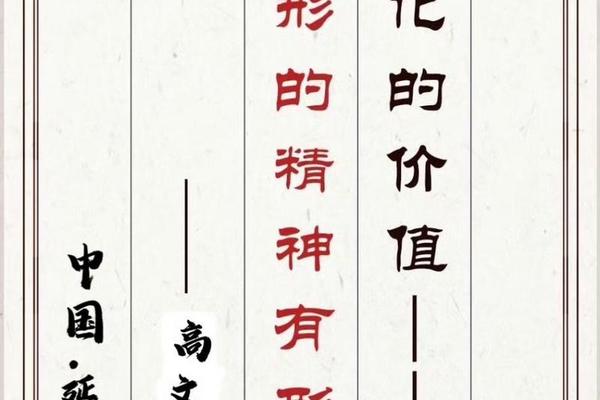 化的价值——
形的精神有形
——高文
中国·延